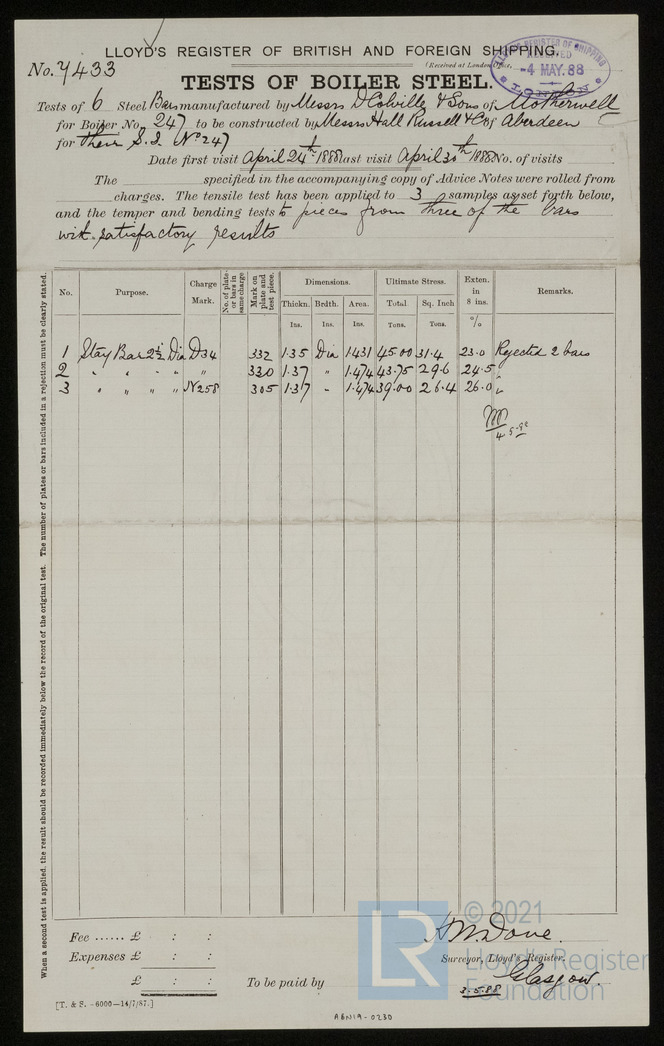 LLOYD'S REGISTER OF BRITISH AND FOREIGN SHIPPING.
(Received at London Office,
LLOYD'S REGISTER OF SHIPPING
-4 MAY. 88
LONDON
No. 7433
TESTS OF BOILER STEEL.
Tests of 6 Steel Bars manufactured by Messrs D Colville & Sons of Motherwell
for Boiler No. 247 to be constructed by Messrs Hall Russell & Co of Aberdeen
for their S.S. (No 247
Date first visit April 24th 1888 last visit April 30th 1888 No. of visits
The specified in the accompanying copy of Advice Notes were rolled from
charges. The tensile test has been applied to 3 samples as set forth below,
and the temper and bending tests to pieces from three of the bars
with satisfactory results
No. Purpose. Charge Mark. No. of plates or bars in same charge Mark on plate and test piece. Dimensions. Ultimate Stress. Exten. in 8 ins. Remarks.
Thickn. Brdth. Area. Total Sq. Inch
Ins. Ins. Ins. Tons. Tons. %
1 Stay Bar 2½ Dia D34 332 1.35 Dia 1.431 45.00 31.4 23.0 Rejected 2 bars
2 " " " " " 330 1.37 " 1.474 43.75 29.6 24.5 "
3 " " " " N258 305 1.37 " 1.474 39.00 26.4 26.0 "
4
When a second test is applied, the result should be recorded immediately below the record of the original test. The number of plates or bars included in a rejection must be clearly stated.
Fee ...... £ : :
Expenses £ : :
£ : :
To be paid by
H M Dove.
Surveyor, Lloyd's Register.
Glasgow.
3.5.88
[T. & S. -6000-14/7/87.]
ABN19-0230
LR
© 2021
Lloyd's Register
Foundation